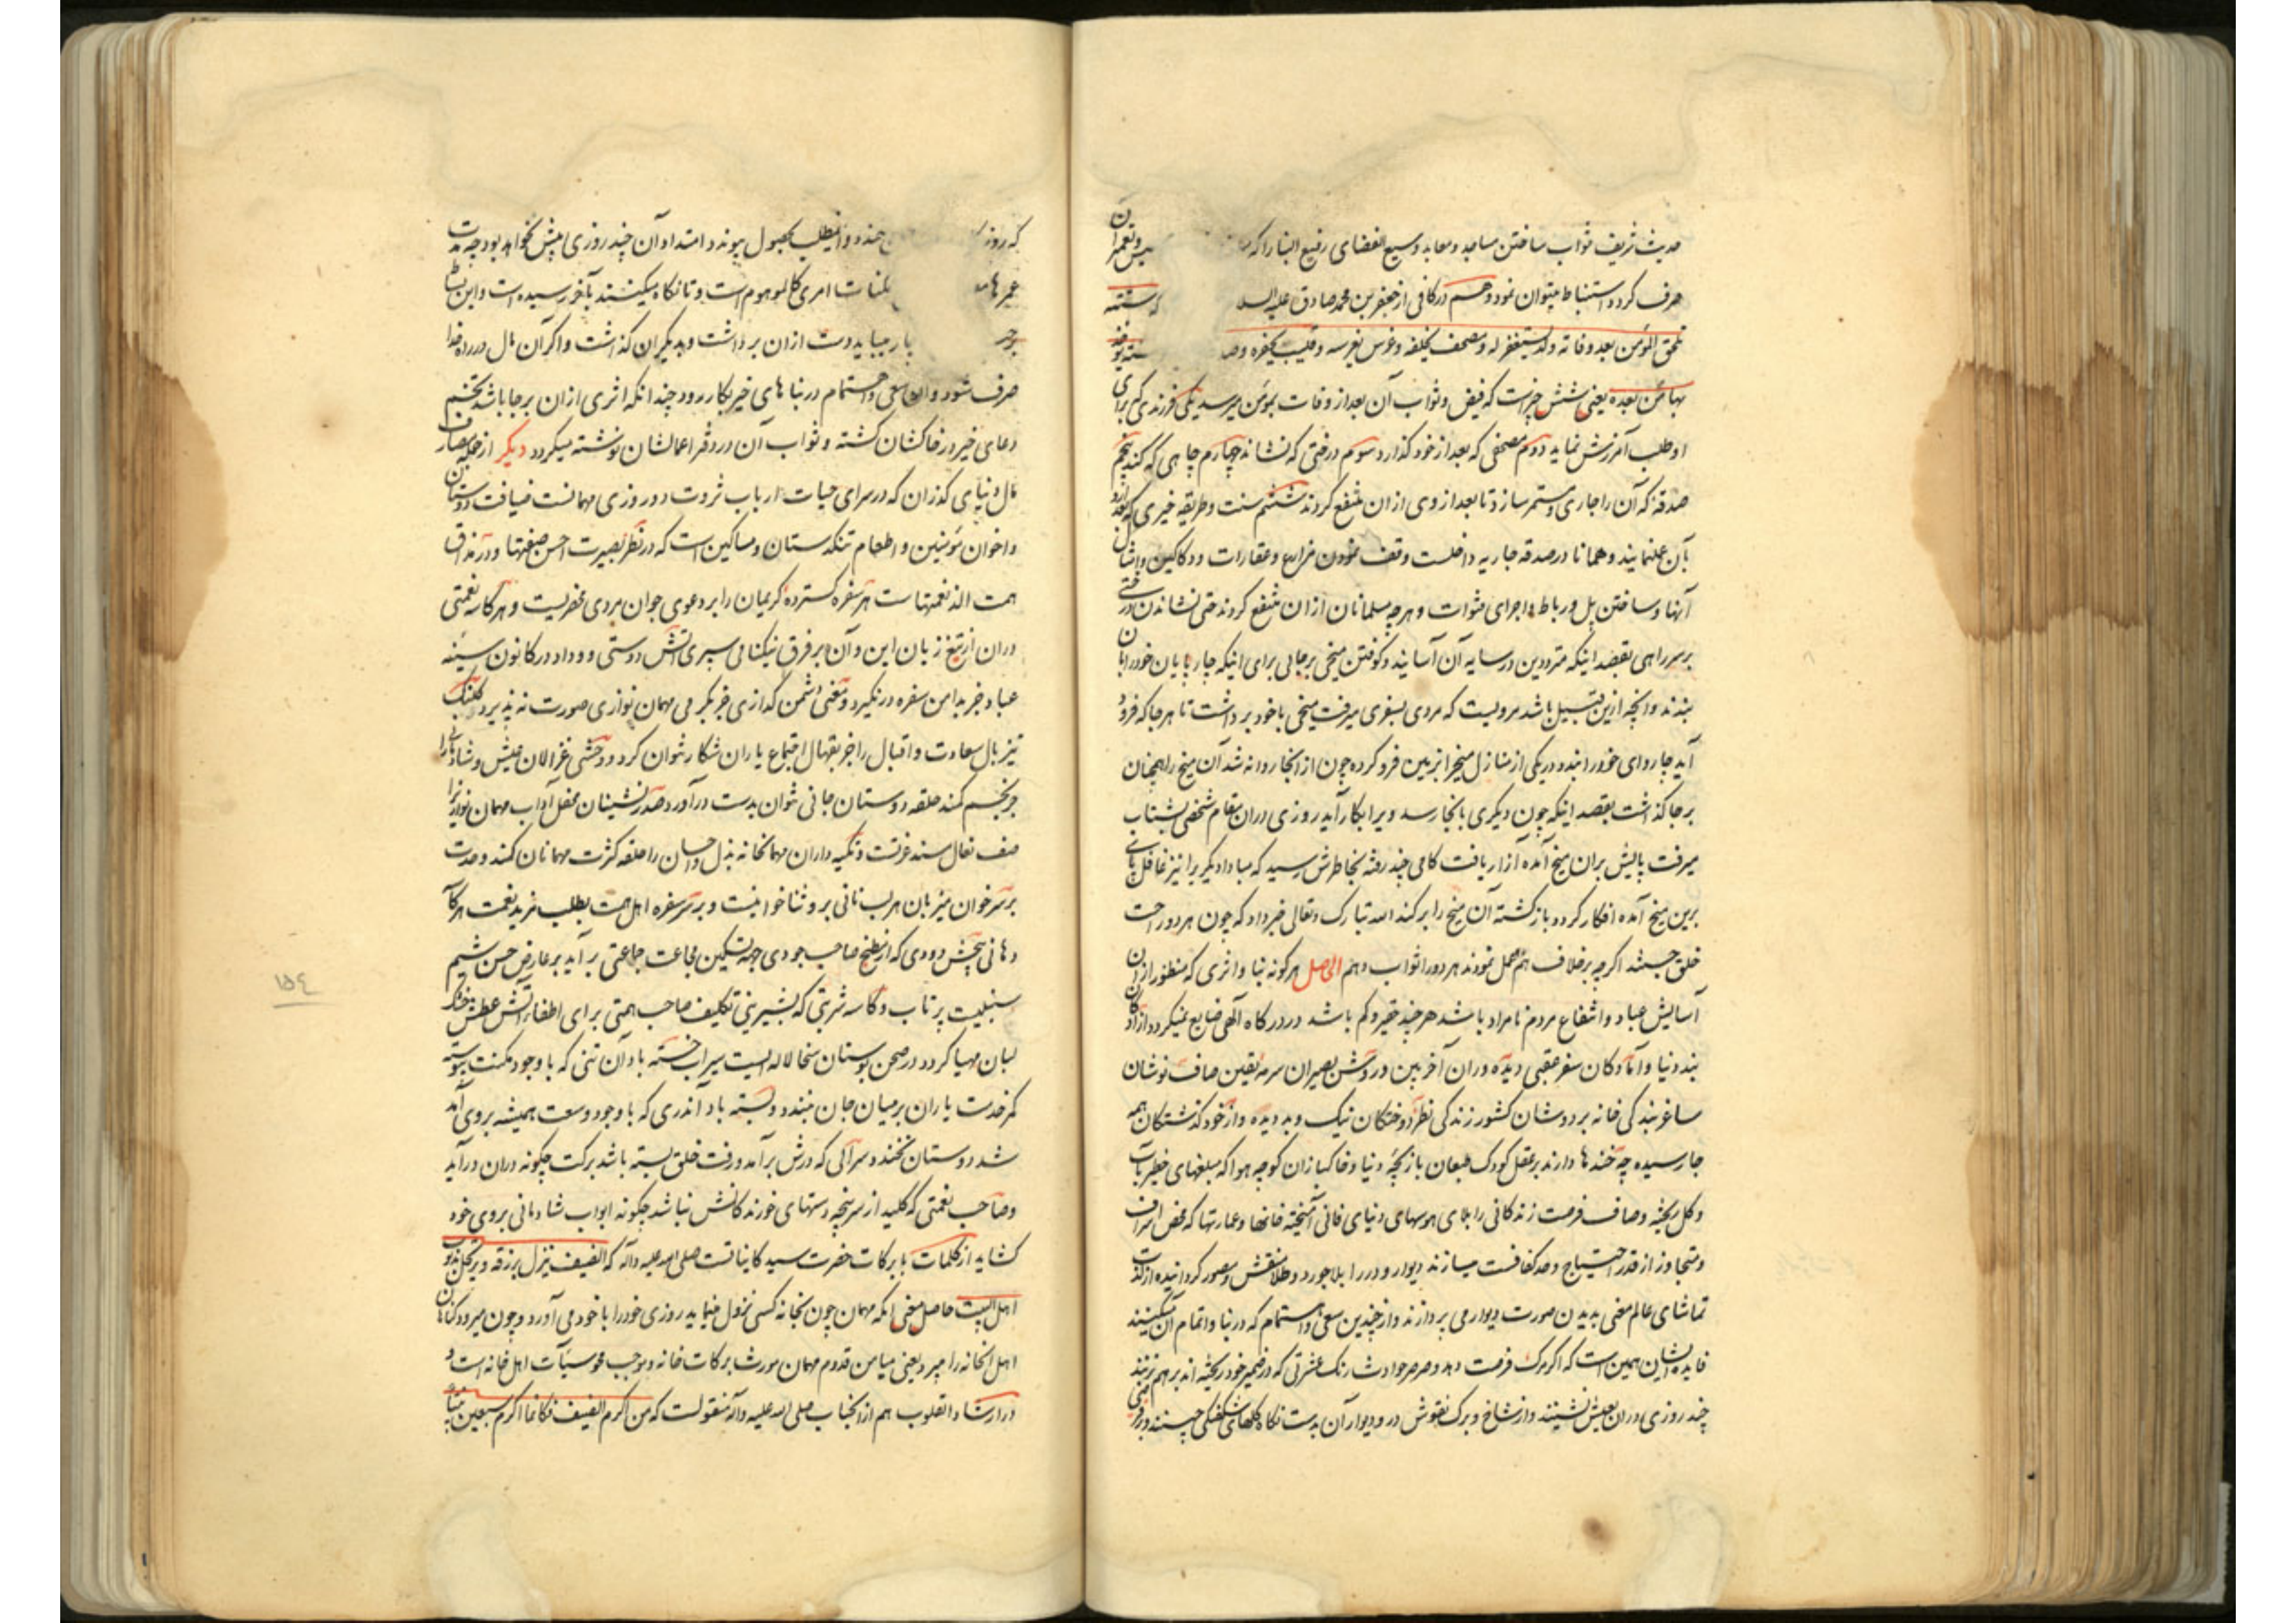 حدیث شریف ثواب ساختن مساجد و معابد وسیع الفضای رفیع البنا را که
صرف کردد استنباط میتوان نمود و هم در کافی از جعفر بن محمد صادق علیه السلا که شش
تلحق المؤمن بعد وفاته ولد یستغفر له و مصحف یخلفه و غرس یغرسه و قلیب یحفره وصد
بها من بعده یعنی شش چیز است که فیض و ثواب آن بعد از وفات بمؤمن میرسد یکی فرزندی که برای
او طلب آمرزش نماید دوم مصحفی که بعد از خود گذارد سوم درختی که نشاند چهارم چاهی که کند پنجم
صدقه که آن را جاری و مستمر سازد تا بعد از وی ازان منتفع کردند ششم سنت و طریقه خیری که بعد ازو
بآن عمل نمایند و همانا در صدقه جاریه داخلست وقف نمودن مزارع و عقارات و دکاکین و امثال
آنها و ساختن پل و رباط و اجرای قنوات و هرچه مسلمانان ازان منتفع کردند حتی نشاندن درختی
بر سر راهی بقصد اینکه مترددین در سایه آن آسایند و کوفتن میخی بر جائی برای اینکه چارپایان خود را بان
بندند و آنچه ازین قبیل باشد مرویست که مردی بسفری میرفت میخی با خود برداشت تا هر جا که فرود
آید چاروای خود را بندد در یکی از منازل میخ را بزمین فرو کرده چون از انجا روانه شد آن میخ را همچنان
بر جا گذاشت بقصد اینکه چون دیگری بانجا رسد ویرا بکار آید روزی دران مقام شخصی بشتاب
میرفت پایش بران میخ آمده آزار یافت کامی چند رفته بخاطرش رسید که مبادا دیگریرا نیز غافل پای
برین میخ آمده افکار کردد باز کشته آن میخ را برکند الله تبارک و تعالی خبر داد که چون هر دو راحت
خلق جستند اگرچه بر خلاف هم عمل نمودند هر دو را ثواب دهم الحاصل هر کونه بنا و اثری که منظور ازان
آسایش عباد و انتفاع مردم نامراد باشد هر چند حقیر و کم باشد در درگاه الهی ضایع نمیگردد آزادگان
بند دنیا و آمادگان سفر عقبی دیده وران آخر بین و روشن بصیران سرمه یقین صاف نوشان
ساغر بندگی خانه بردوشان کشور زندگی نظر دوختگان نیک و بد دیده و از خود گذشتگان همه
جا رسیده چه خنده ها دارند بر عقل کودک طبعان بازیچه دنیا و خاکبازان کوچه هوا که مبلغهای خطیر بآب
و گل ریخته و صاف فرصت زندکانی را بلای هوسهای دنیای فانی آمیخته خانها و عمارتها که محض اسراف
و متجاوز از قدر احتیاج و حد کفافست میسازند دیوار و در را بلاجورد و طلا منقش و مصور گردانیده از لذت
تماشای عالم معنی بدیدن صورت دیوار می پردازند و از چندین سعی و اهتمام که در بنا و اتمام آن میکنند
فایده ایشان همین است که اگر مرک فرصت دهد و صرصر حوادث رنگ عشرتی که در ضمیر خود ریخته اند بر هم نزند
چند روزی دران بعیش نشینند و از شاخ و برک نقوش در و دیوار آن بدست نگاه گلهای شکفتگی چینند
که روز خندد و اینمطلب بحصول پیوندد امتداد آن چند روزی بیش نخواهد بود چه مدت
عمرها امری کالموهوم است و تا نگاه میکنند بآخر رسیده است و این
بار میباید دست ازان برداشت و بدیگران گذاشت و اگر آن مال در راه خدا
صرف شود و ان سعی و اهتمام در بناهای خیر بکار رود چندانکه اثری ازان بر جا باشد تخم
دعای خیر در خاکشان کشته و ثواب آن در دفتر اعمالشان نوشته میگردد دیگر از جمله مصارف
مال دنیای گذران که در سرای حیات ارباب ثروت دو روزی مهمانست ضیافت دوستان
و اخوان مؤمنین و اطعام تنگدستان و مساکین است که در نظر بصیرت احسن صنعتها و در مذاق
همت الذ نعمتهاست هر سفره گسترده کریمان را بر دعوی جوانمردی محضریست و هر کاسه نعمتی
دران از تیغ زبان این و آن بر فرق نیکنامی سپری آتش دوستی و وداد در کانون سینه
عباد جز بدامن سفره در نگیرد و معنی دشمن گدازی جز بگرمی مهمان نوازی صورت نه پذیرد کلنک
تیز بال سعادت و اقبال را جز بقبال اجتماع یاران شکار نتوان کرد و وحشی غزالان عیش و شادی را
جز بخم کمند حلقه دوستان جانی نتوان بدست درآورد صدرنشینان محفل آداب مهمان نوازی را
صف نعال مسند عزتست و تکیه داران مهمانخانه بذل و احسان را حلقه کثرت مهمانان کمند وحدت
بر سر خوان میزبان هر لب نانی برو ثناخوانیست و بر سر سفره اهل همت بطلب مزید نعمت هر کاسه
دهانی پیچش دودی که از مطبخ صاحب جودی جهه تسکین مجاعت جماعتی برآید بر عارض حسن شیم
سنبلیست پرتاب و کاسه شربتی که بشیرینی تکلیف صاحب همتی برای اطفاء آتش عطش خشک
لبان مهیا کردد در صحن بوستان سخا لاله ایست سیراب خسته باد آن تنی که با وجود مکنت پیوسته
کمر خدمت یاران بر میان جان نبندد و بسته باد آندری که با وجود وسعت همیشه بروی آمد
شد دوستان نخندد سرائی که درش بر آمد و رفت خلق بسته باشد برکت چگونه دران درآید
و صاحب نعمتی که کلید از سر پنجه دستهای خورندکانش نباشد چگونه ابواب شادمانی بروی خود
کشاید از کلمات با برکات حضرت سید کایناتست صلی الله علیه وآله که الضیف ینزل برزقه و یرتحل بذنوب
اهل البیت حاصل معنی انکه مهمان چون بخانه کسی نزول مینماید روزی خود را با خود می آورد و چون میرود گناهان
اهل آنخانه را میبرد یعنی میامن قدوم مهمان مورث برکات خانه و موجب محو سیآت اهل خانه است و
در ارشاد القلوب هم از انجناب صلی الله علیه وآله منقولست که من اکرم الضیف فکانما اکرم سبعین نبیا
١٥٤